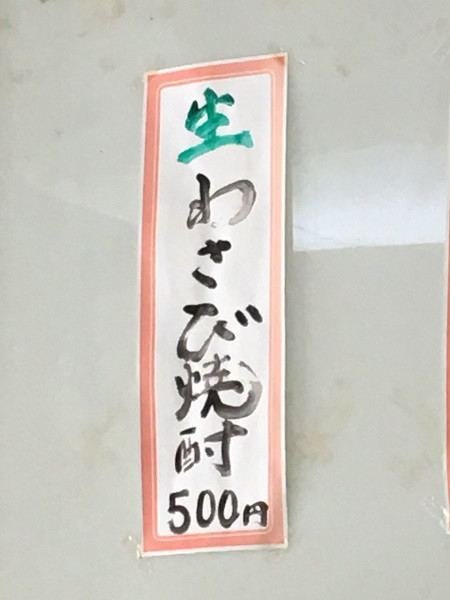 生わさび焼酎
500円